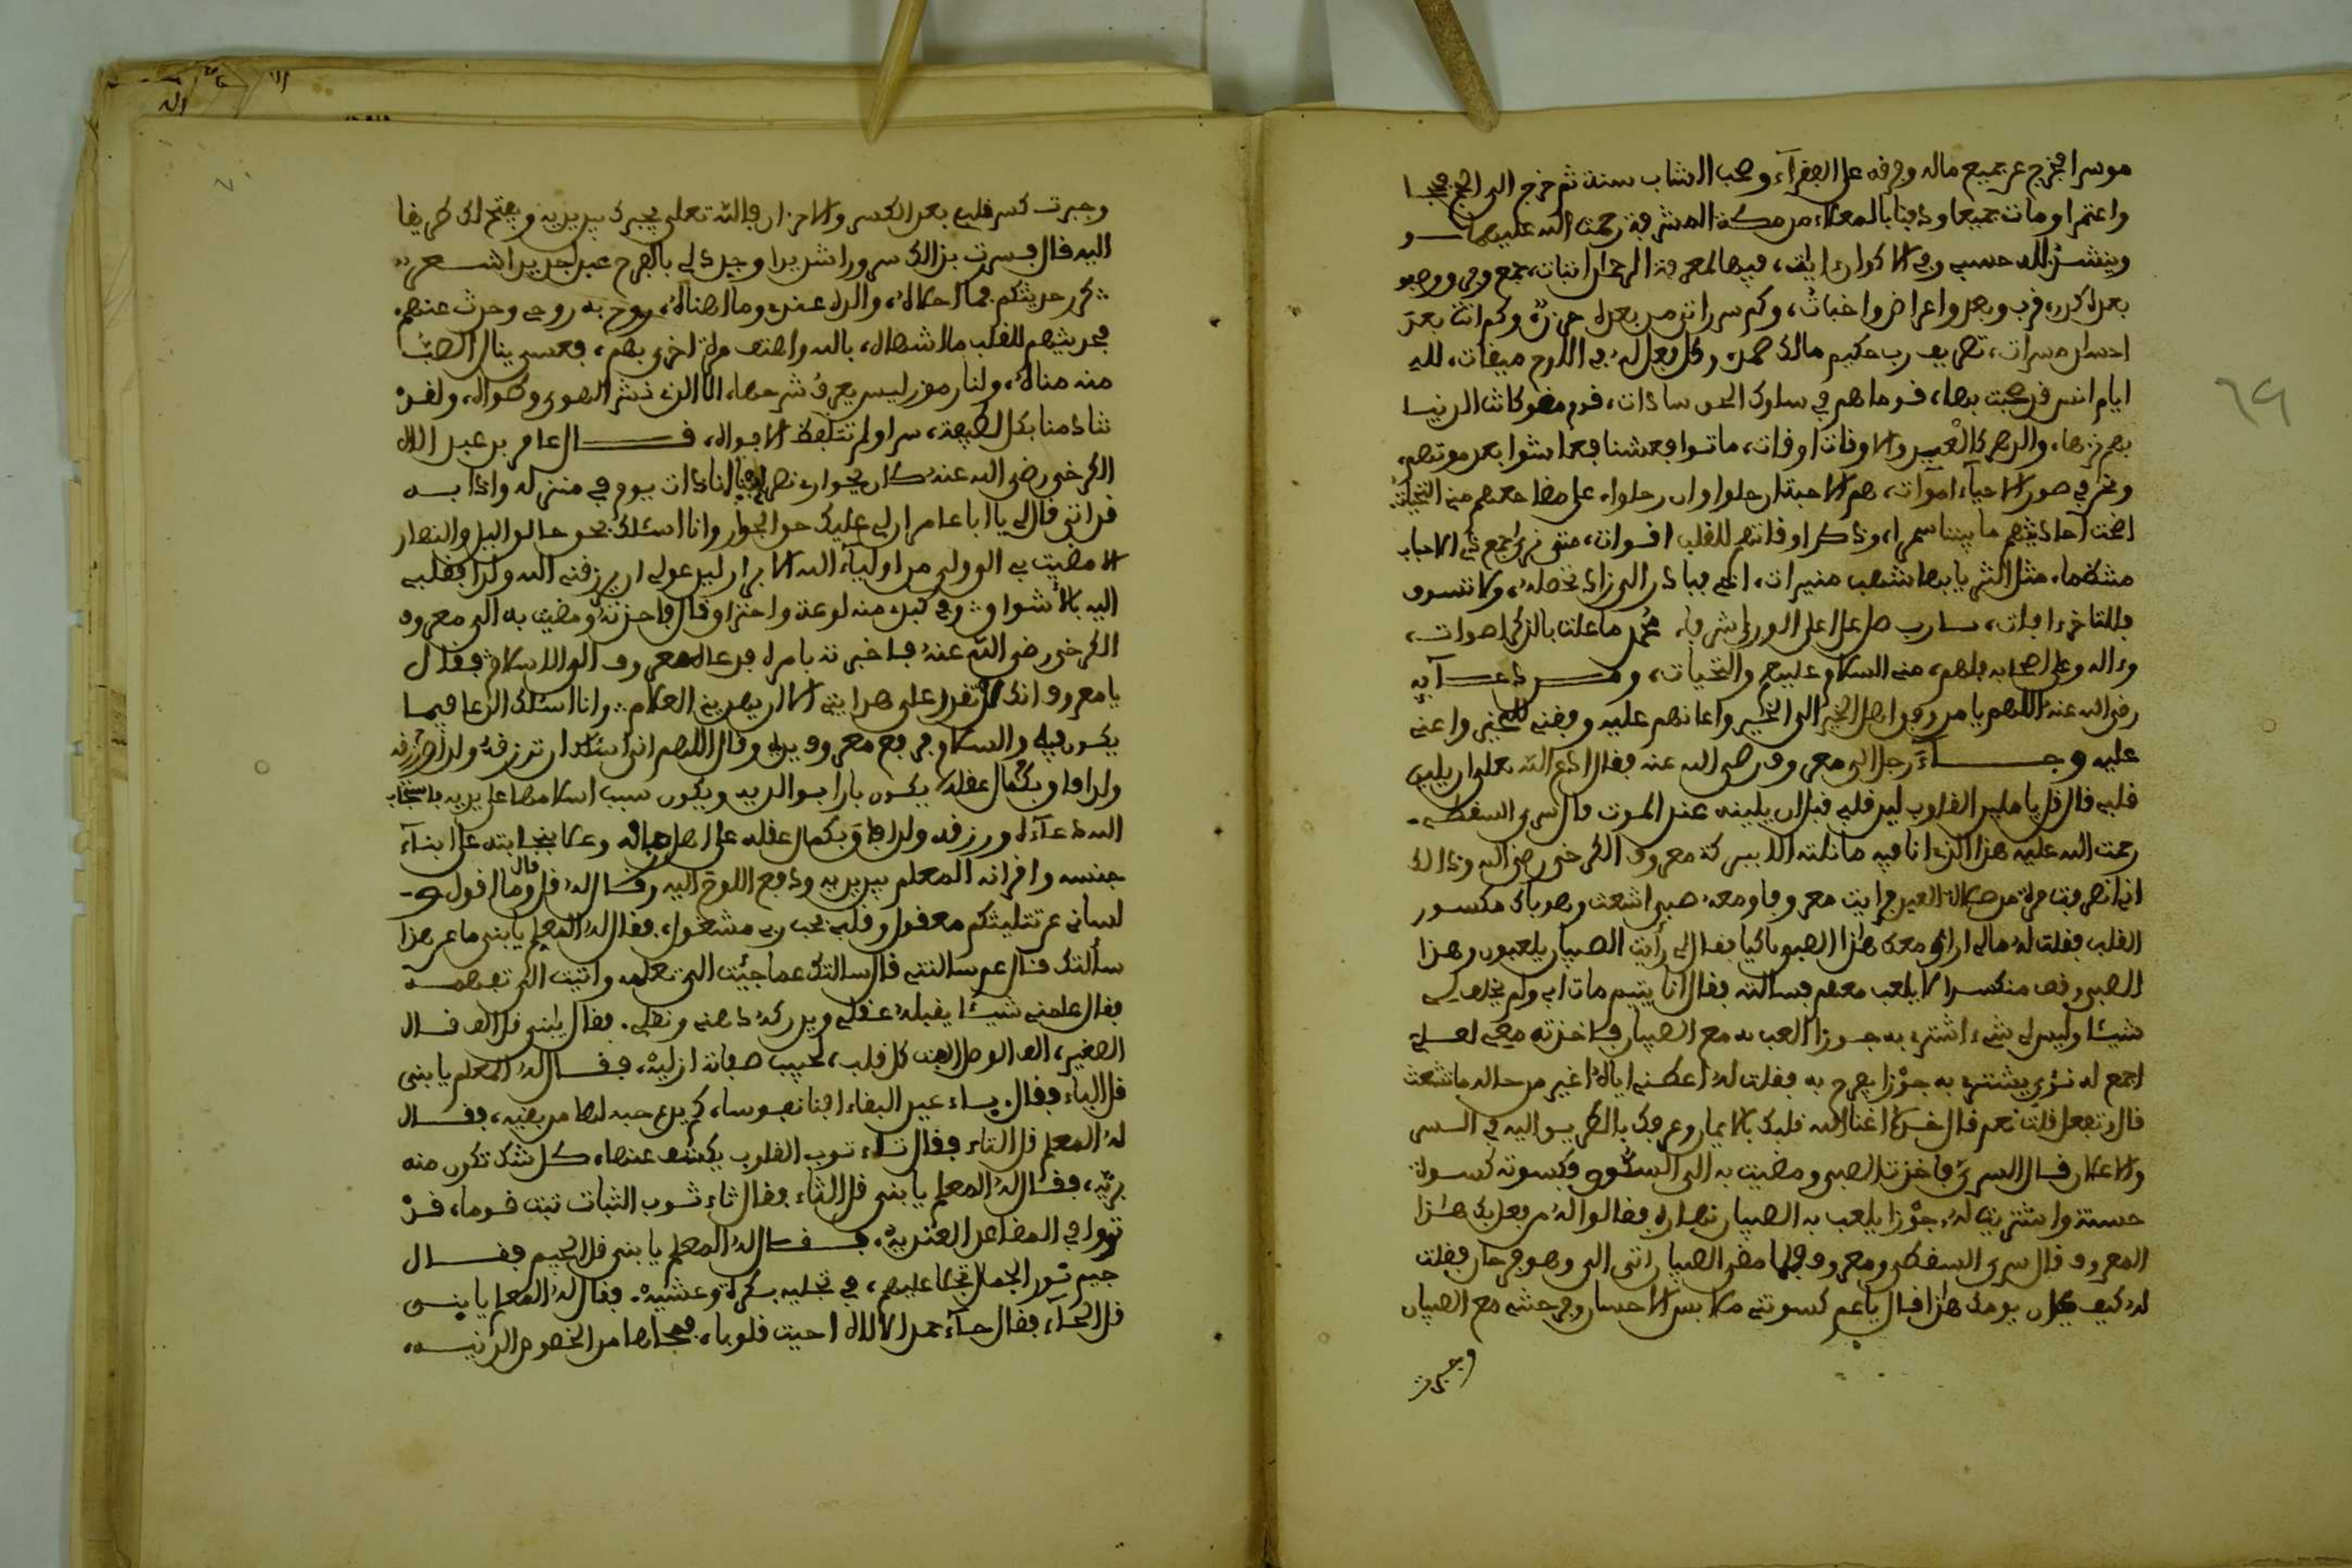 موسرا فخرج عن جميع ماله وفرقه على الفقرآء وصحب الشاب سنة ثم خرج الى الحج فحجا
واعتمرا وماتا جميعا ودفنا بالمعلاء من مكة المشرفة رحمت الله عليهما
وينشد لله حسبي وفي الاكوان ايات، فيها لمعرفة الرحمان اثبات، جمع وفرق ووصو
بعده كدر، قرب وبعد واعراض واخبات، وكم سرر اتى من بعده حزن، وكم اتت بعد
احسان مسرات، تصريف رب حكيم مالك صمد، وكل فعل له في اللوح ميقات، لله
ايام انس قد صحبت بها، قوما هم في سلوك الحق سادات، قوم مضو كانت الدنيا
بهم نزها، والدهر كالعيد والاوقات اوقات، ماتوا فعشنا فعاشوا بعد موتهم،
ونحن في صور الاحياء اموات، هم الاحبة ان حلوا وان رحلوا، على مضاجعهم منا التحيات
اضحت احاديثهم ما بيننا سمرا، وذكر اوقاتهم للقلب اقوات، متى نرى جمع ذي الاحباب
منتظما، مثل الثريا بها شهب منيرات، اخي فبادر الى زاد تحصله، ولا تسوف
فللتاخر افات، يارب صل على اعلى الورى شرفا، محمد ما علت بالذكر اصوات،
وءاله وعلى اصحابه فلهم، منى السلام عليهم والتحيات، ومن دعائه
رضى الله عنه اللهم يا من وفق اهل الخير الى الخير واعانهم عليه وفقني للخير واعني
عليه وجاء رجل الى معروف رضى الله عنه فقال ادع الله تعلى ان يلين
قلبي قال قل يا ملين القلوب لين قلبي قبل ان يلينه عند الموت قال سرى السقطي
رحمت الله عليه هذا الذى انا فيه ما نلته الا ببركة معروف الكرخي رضى الله وذالك
اني انصرفت مرة من صلاة العيد فرايت معروفا ومعه صبى اشعث وهو باك مكسور
القلب فقلت له مالي اراك معك هذا الصبي باكيا فقال رأيت الصبيان يلعبون وهذا
الصبى واقف منكسرا لا يلعب معهم فسالته فقال انا يتيم مات ابي ولم يخلف لي
شيئا وليس لي شيء اشترى به جوزا العب به مع الصبيان فاخذته معى لعلي
اجمع له نوى يشترى به جوزا يفرح به فقلت له اعطني اياه اغير من حاله ما شعث
قال وتفعل قلت نعم قال خذه اغنا الله قلبك بالايمان وعرفك بالطريق اليه في السر
والاعلان قال السرى فاخذت الصبى ومضيت به الى السوق فكسوته كسوة
حسنة واشتريت له جوزا يلعب به الصبيان نهاره فقالوا له من فعل بك هذا
المعروف قال سرى السقطى ومعروف فلما مضى الصبيان اتى الى وهو فرحان فقلت
له كيف كان يومك هذا فقال يا عم كسوتني ملابس الاحسان وفرحتني مع الصبيان
وجبرت
وجبرت كسر قلبي بعد الكسر والاحزان فالله تعلى يجبرك بين يديه ويفتح لك طريقا
اليه قال فسرت بذالك سرورا شديدا وجدد لي بالفرح عيدا جديدا شعر
كرر حديثكم فما احلاه، والذه عندى وما اهناه، روح به روحي وحدث عنهم،
فحديثهم للقلب ما اشهاه، بالله واهتف مرة اخرى بهم، فعسى ينال الصب
منه مناه، ولنا رموز ليس يعرف شرحها، الا الذى نشر الهوى وطواه، ولقد
تنادمنا بكل لطيفة، سرا ولم تتلفظ الافواه، قال عامر بن عبد الله
الكرخى رضى الله عنه كان بجوارى نصراني فاتانا ذات يوم في منزله واذا به
قد اتى قال لي يا ابا عامر ان لي عليك حق الجوار وانا اسئلك بحق خالق اليل والنهار
الا مضيت بي الى ولى من اولياء الله الابرار ليدعو لي ان يرزقني الله ولدا فقلبي
اليه بالاشواق وفي كبدى منه لوعة واحتراق قال فاخذته ومضيت به الى معروف
الكرخى رضى الله عنه فاخبرته بامره فدعاه معروف الى الاسلام فقال
يا معروف انك لا تقدر على هدايتي الا ان يهديني العلام وانا اسئلك الدعا فيما
يكون فيه والسلام فرفع معروف يديه وقال اللهم اني اسئلك ان ترزقه ولدا
ولدا فاق بكمال عقله يكون بارا بوالديه ويكون سبب اسلامهما على يديه فاستجاب
الله دعاءه ورزقه ولدا فاق بكمال عقله على اهل زمانه وعلا بنجابته على ابناء
جنسه واقرانه المعلم بين يديه ودفع اللوح اليه وقال له قل قال وما اقول و
لساني عن تثليثكم معقول وقلبي بحب ربي مشغول، فقال له المعلم يا بنى ما عن هذا
سألتك قال عم سالتني قال سالتك عما جئت الى تعلمه واتيت الى تفهمه
فقال علمني شيئا يقبله عقلي ويدركه ذهني ونقلي، فقال يابنى قل الف قال
الصغير، الف الوصل الفت كل قلب، لحبيب صفاته ازلية، فقال له المعلم يا بنى
قل الباء فقال باء عين البقاء افنا نفوسا، كم يرى حبه لها من بقيه، فقال
له المعلم قل التاء فقال تاء توب القلوب يكشف عنها، كل شك تكون منه
بريه، فقال له المعلم يا بنى قل الثاء فقال ثاء ثوب الثبات ثبت قوما، قد
ثووا في المقاعد العنديه، فقال له المعلم يا بنى قل الجيم فقال
جيم نور الجمال تجلا عليهم، في تجليه بكرة وعشيه، فقال له المعلم يا بنى
قل الحاء، فقال حاء حمد الاله احيت قلوبا، فمحاها من الخصوص الدنيه،